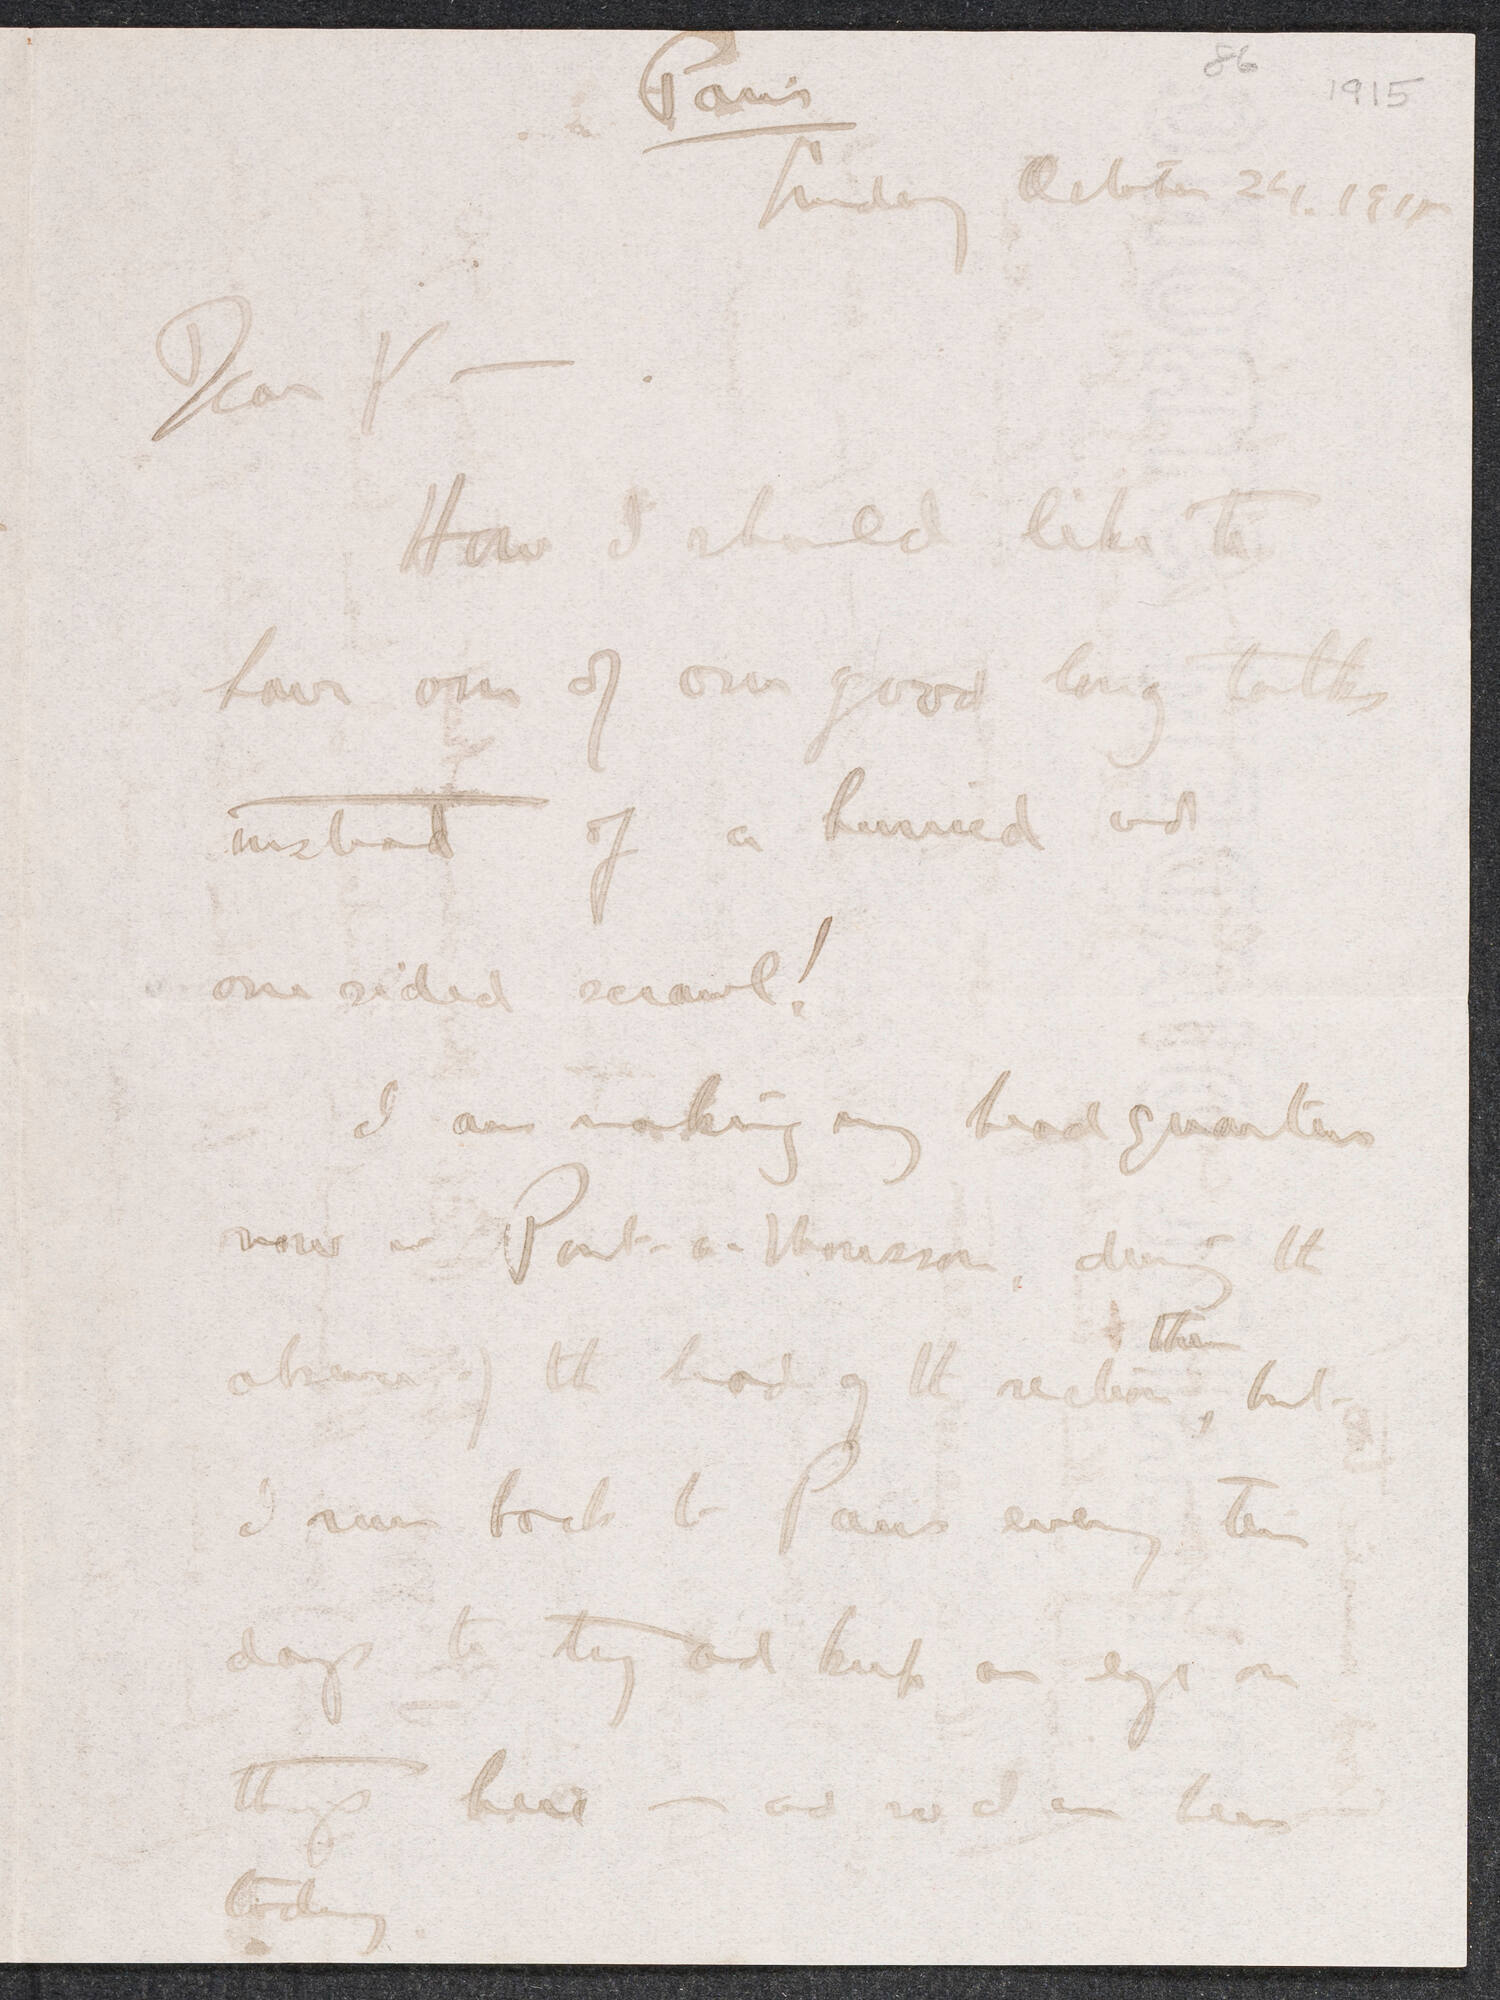 86
1915
Paris
Sunday October 24. 1915
Dear P —
How I should like to
have one of our good long talks
instead of a hurried and
one sided scrawl!
I am making my head quarters
now in Pont-a-Mousson, during the
absence of the head of the section there, but
I run back to Paris every ten
days to try and keep an eye on
things here — and so I am here
today.